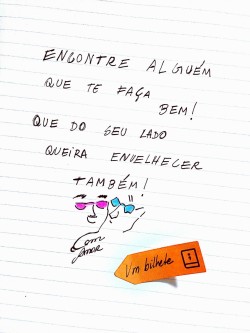 ENCONTRE ALGUÉM
QUE TE FAÇA
BEM!
QUE DO SEU LADO
QUEIRA ENVELHECER
TAMBÉM!
Com
Amor
Um bilhete